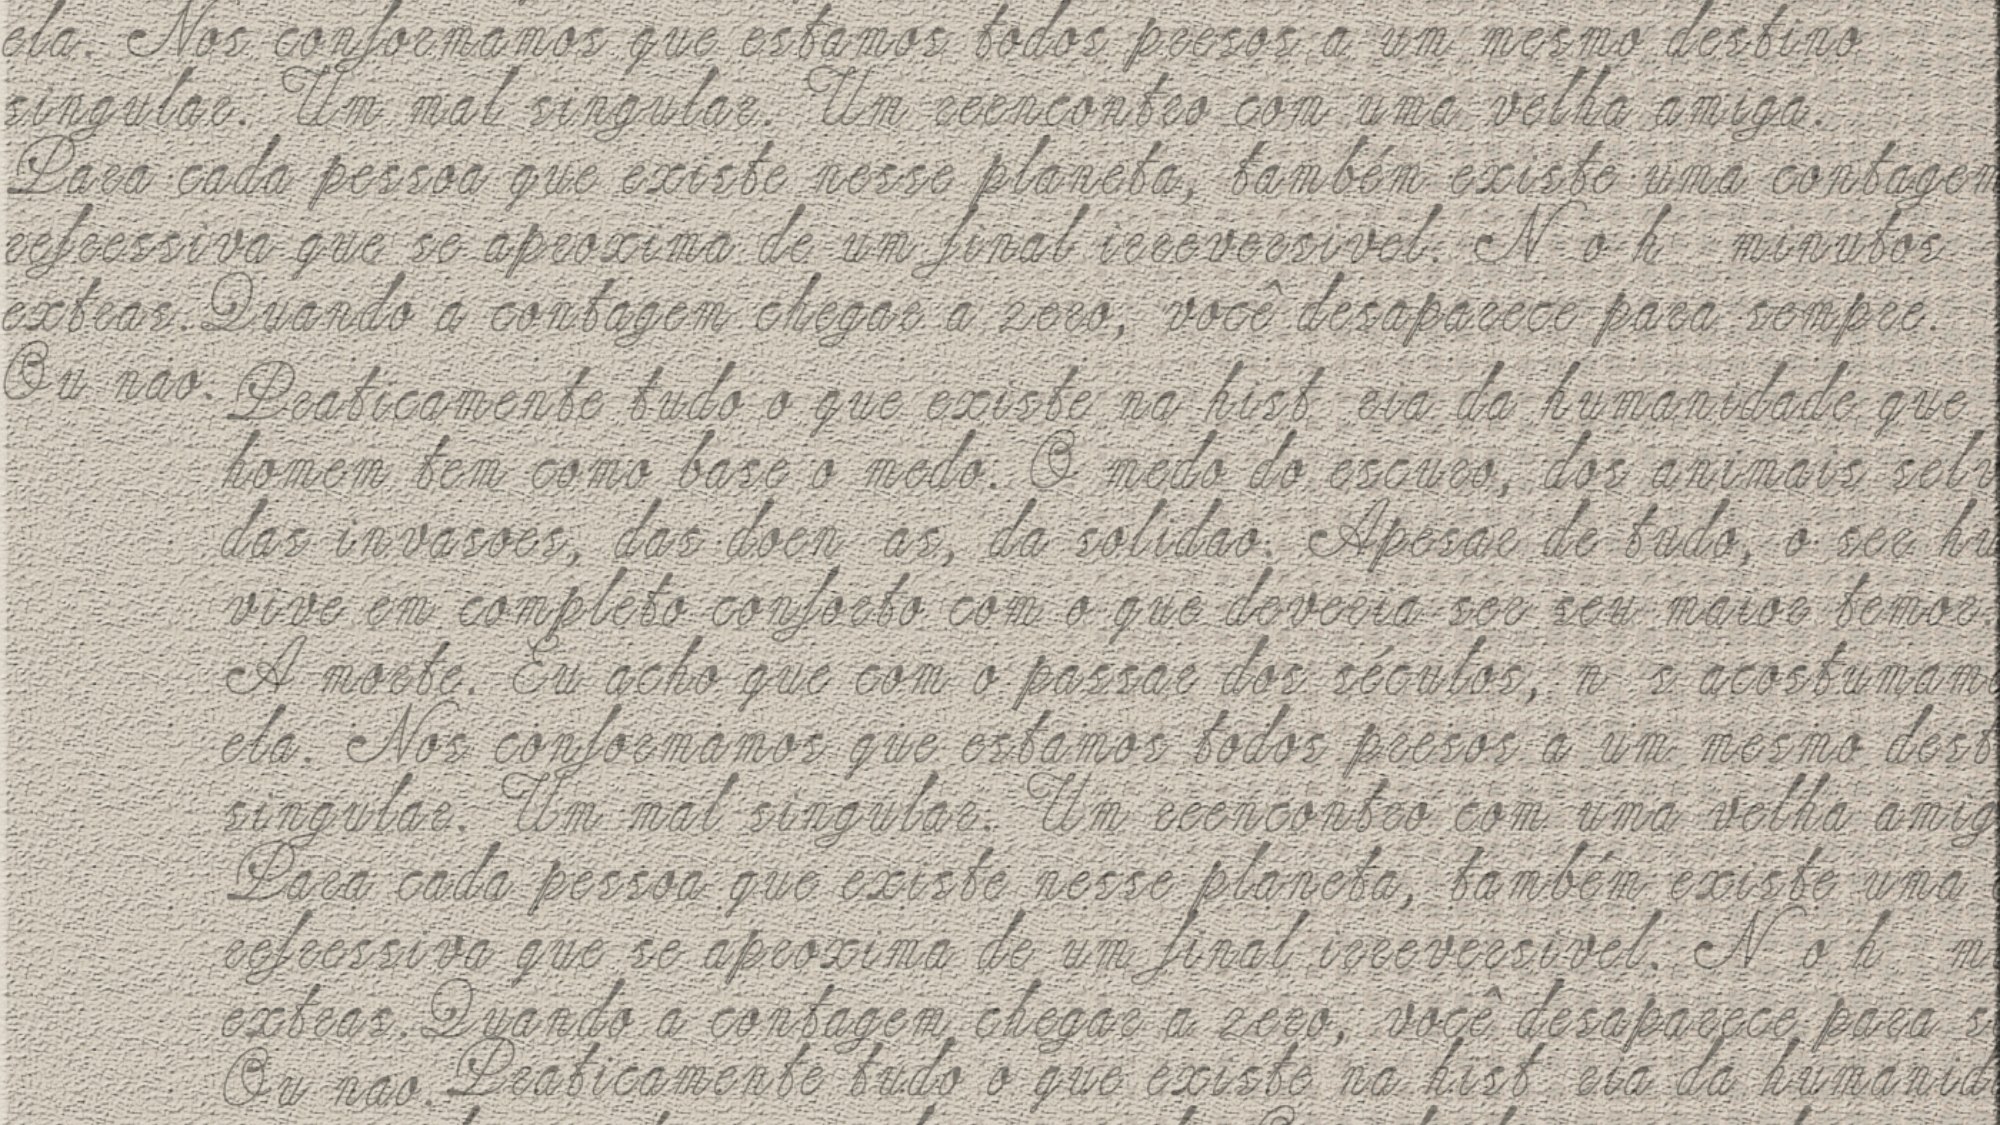 ela. Nos conformamos que estamos todos presos a um mesmo destino
singular. Um mal singular. Um reencontro com uma velha amiga.
Para cada pessoa que existe nesse planeta, também existe uma contagem
refressiva que se aproxima de um final irreversivel. N o h minutos
extras. Quando a contagem chegar a zero, você desaparece para sempre.
Ou nao.
Praticamente tudo o que existe na hist ria da humanidade que
homem tem como base o medo. O medo do escuro, dos animais selv
das invasoes, das doen as, da solidao. Apesar de tudo, o ser hu
vive em completo conforto com o que deveria ser seu maior temor.
A morte. Eu acho que com o passar dos séculos, n s acostumamo
ela. Nos conformamos que estamos todos presos a um mesmo dest
singular. Um mal singular. Um reencontro com uma velha amig
Para cada pessoa que existe nesse planeta, também existe uma
refressiva que se aproxima de um final irreversivel. N o h m
extras. Quando a contagem chegar a zero, você desaparece para s
Ou nao. Praticamente tudo o que existe na hist ria da humanid